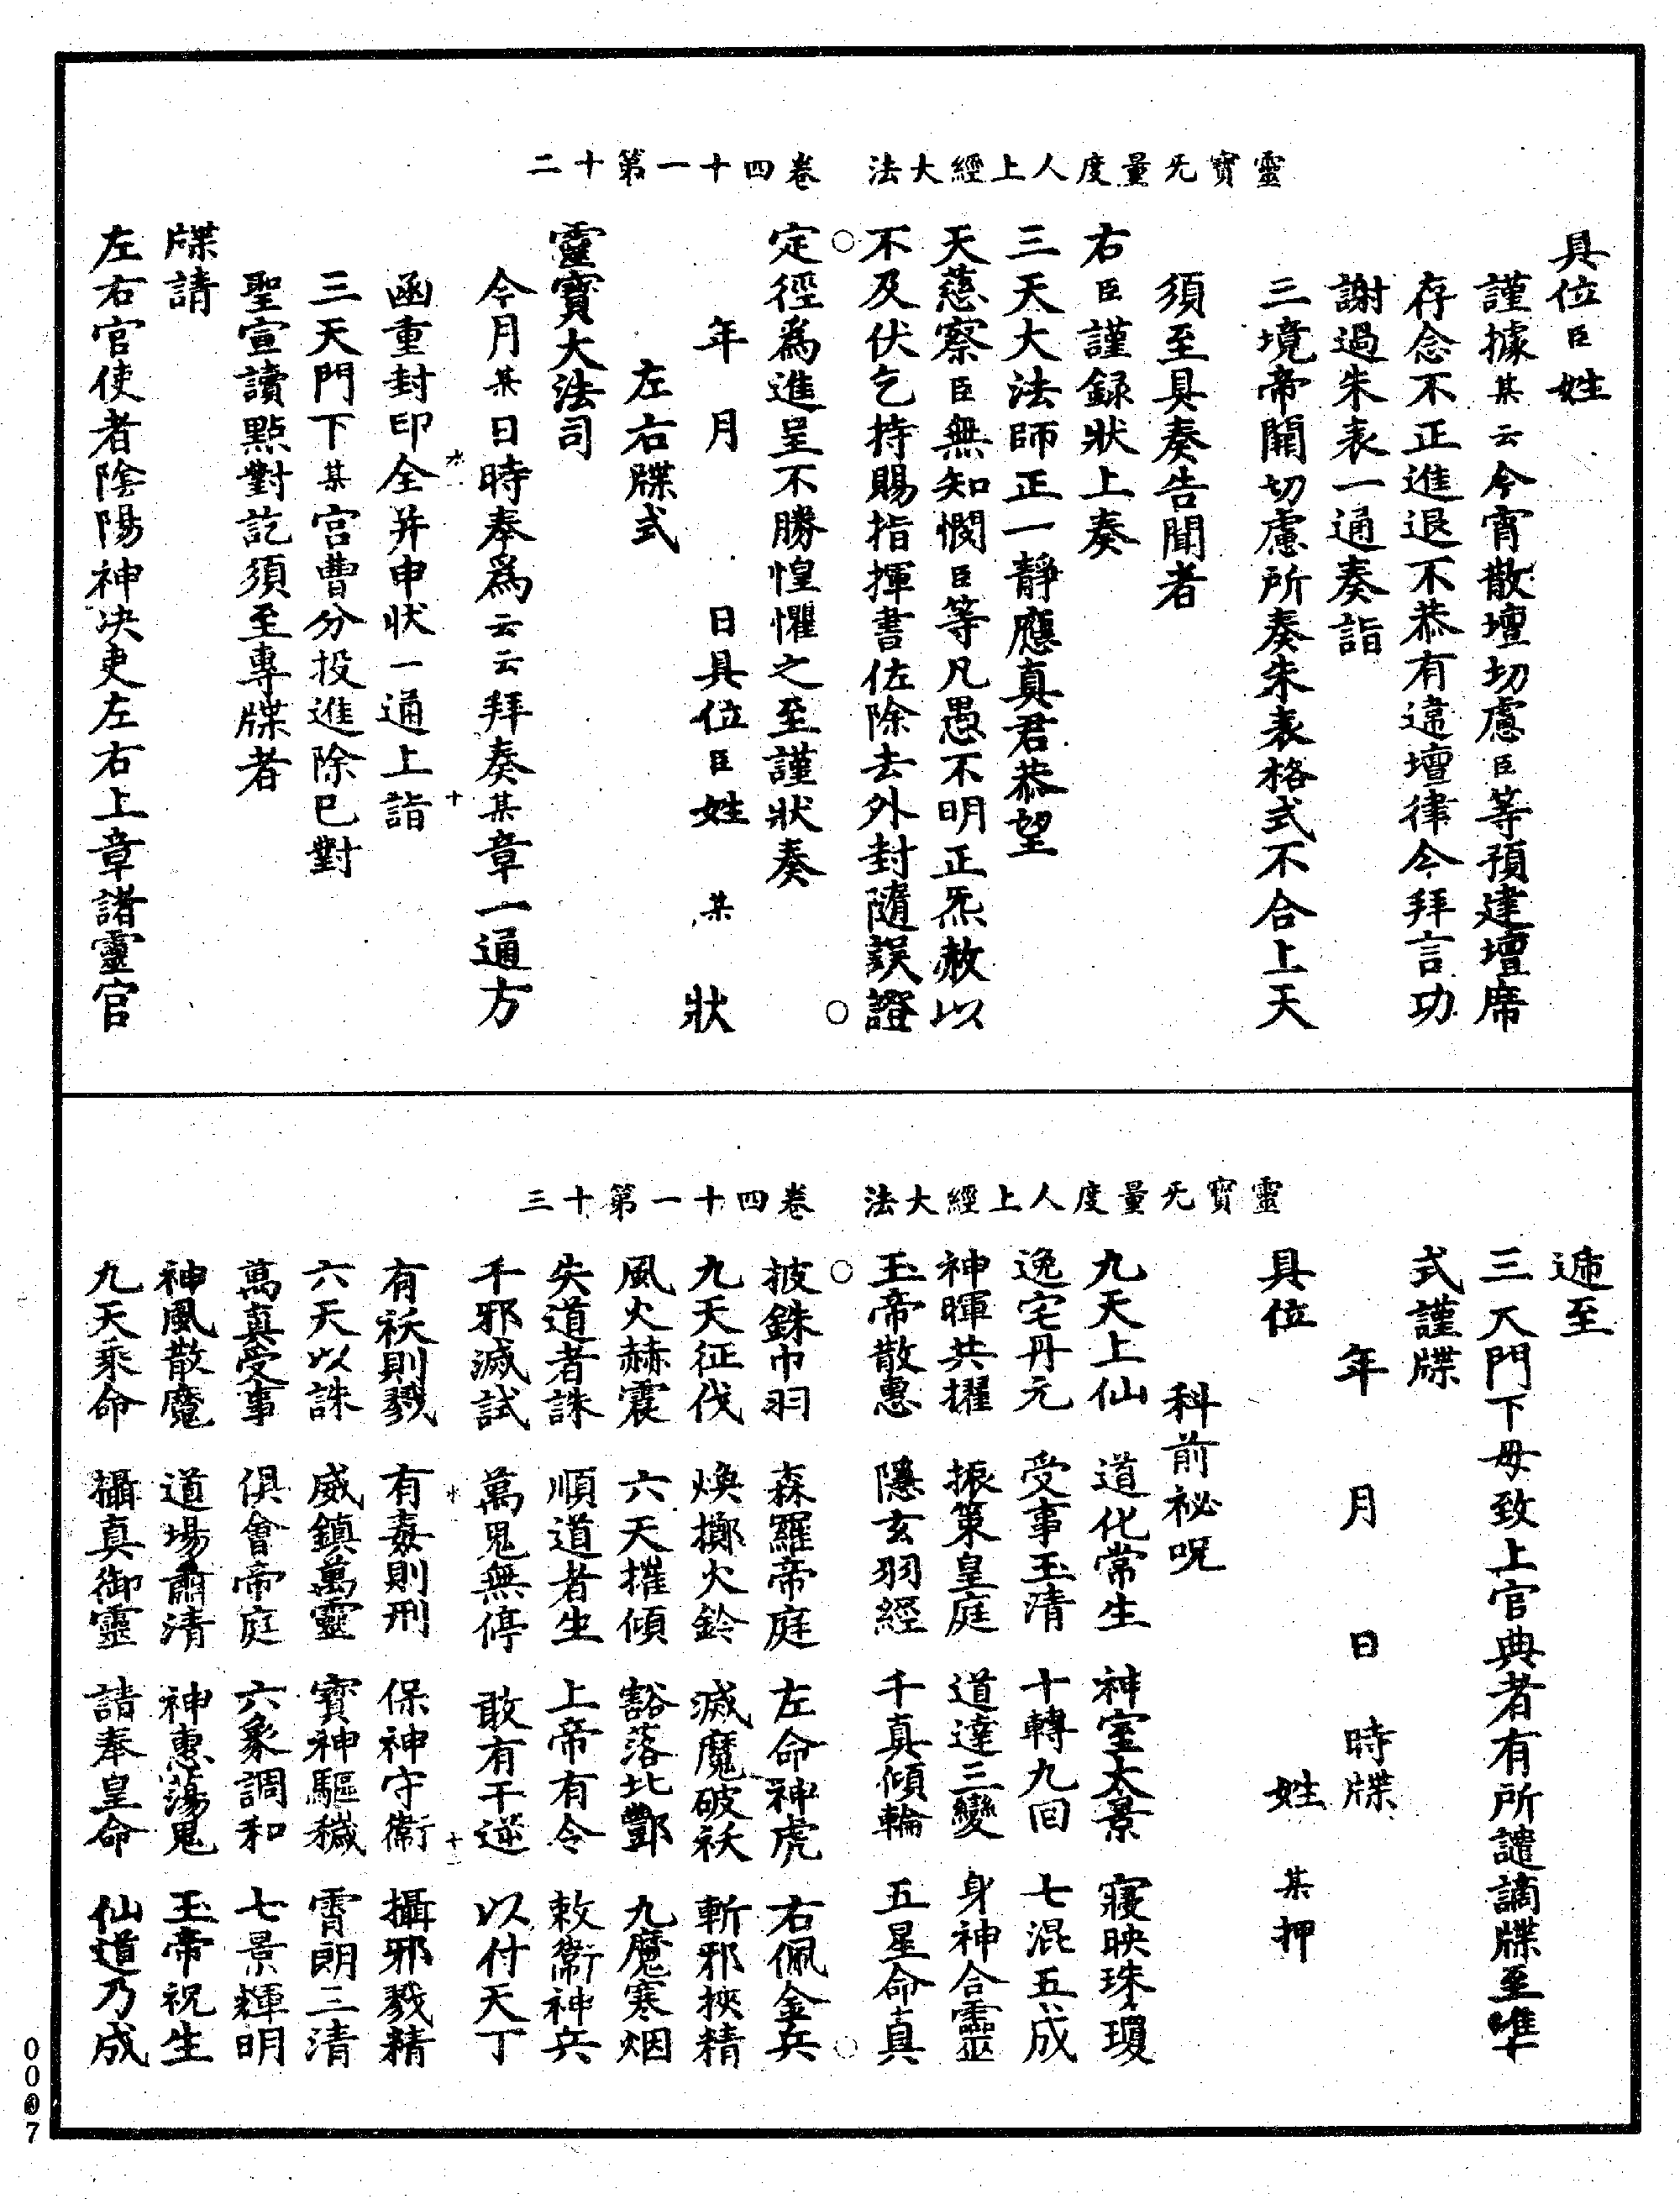 靈寶无量度人上經大法　卷四十一第十二
具位臣姓
謹據某云今宵散壇切慮臣等預建壇席
存念不正進退不恭有違壇律今拜言功
謝過朱表一通奏詣
三境帝闕切慮所奏朱表格式不合上天
須至具奏告聞者
右臣謹録狀上奏
三天大法師正一靜應真君恭望
天慈察臣無知憫臣等凡愚不明正炁赦以
不及伏乞持賜指揮書佐除去外封隨誤證
定徑為進呈不勝惶懼之至謹狀奏
年　月　日具位臣姓　某　狀
左右牒式
靈寶大法司
今月某日時奉為云云拜奏某章一通方
函重封印全并申狀一通上詣
三天門下某宫曹分投進除已對
聖宣讀點對訖須至專牒者
牒請
左右官使者陰陽神决吏左右上章諸靈官
靈寶无量度人上經大法　卷四十一第十三
遞至
三天門下毋致上官典者有所譴謫牒至準
式謹牒
年　月　日　時牒
具位　姓　某押
科前祕呪
九天上仙　道化常生　神室太景　寢映珠瓊
逸宅丹元　受事玉清　十轉九回　七混五成
神暉共擢　振策皇庭　道達三變　身神合靈
玉帝散惠　隱玄羽經　千真傾輪　五星命真
披銖巾羽　森羅帝庭　左命神虎　右佩金兵
九天征伐　煥擲火鈴　滅魔破袄　斬邪挾精
風火赫震　六天摧傾　豁落北酆　九魔寒烟
失道者誅　順道者生　上帝有令　敕衛神兵
千邪滅試　萬鬼無停　敢有干逆　以付天丁
有袄則戮　有毒則刑　保神守衛　攝邪戮精
六天以誅　威鎮萬靈　寳神驅穢　霄朗三清
萬真受事　俱會帝庭　六象調和　七景輝明
神風散魔　道場肅清　神惠蕩鬼　玉帝祝生
九天乘命　攝真御靈　請奉皇命　仙道乃成
0007